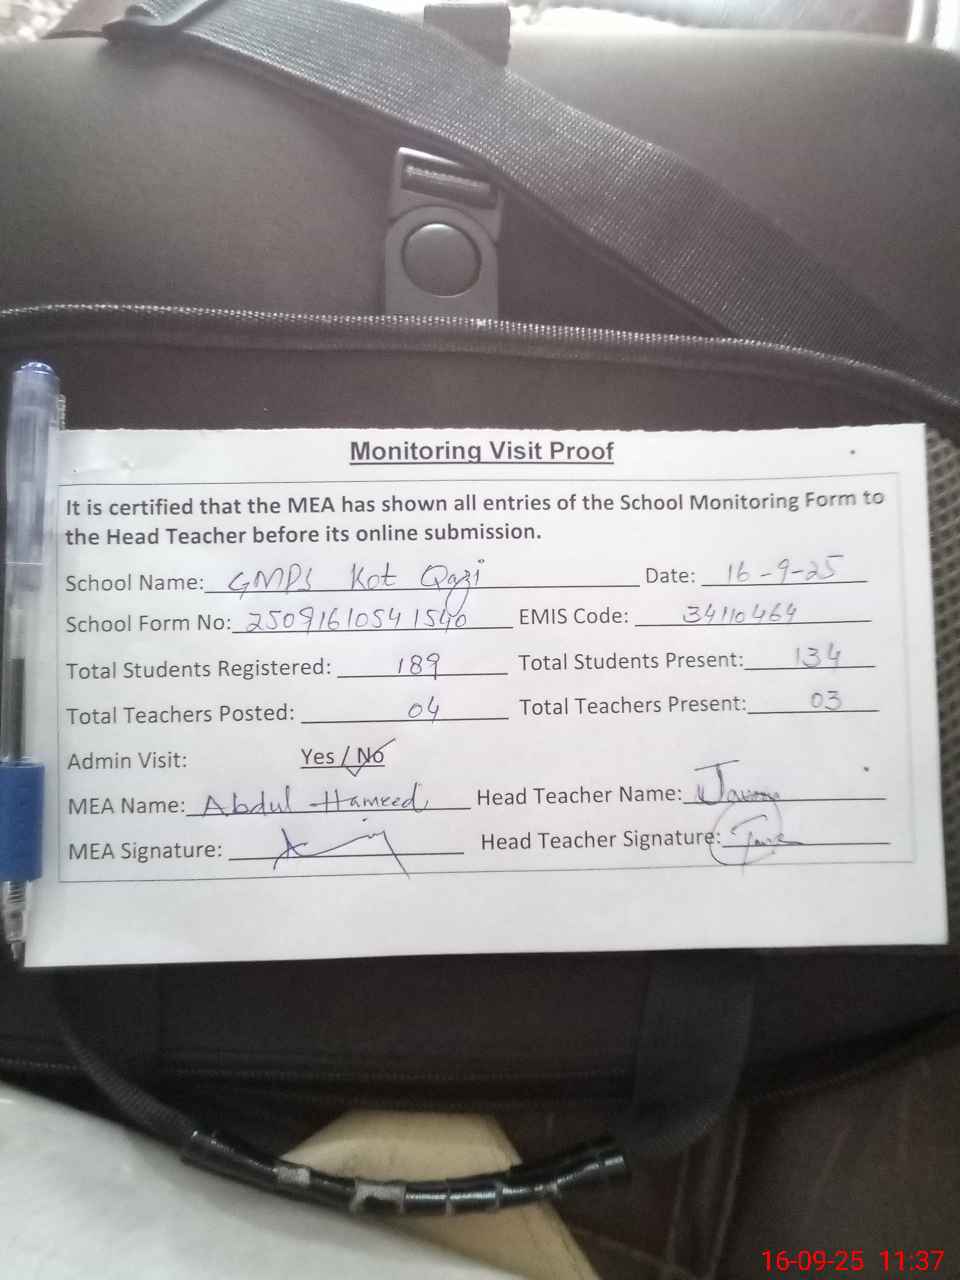 Monitoring Visit Proof
It is certified that the MEA has shown all entries of the School Monitoring Form to
the Head Teacher before its online submission.
School Name: GMPS Kot Qazi Date: 16-9-25
School Form No: 2509161054 1540 EMIS Code: 34110464
Total Students Registered: 189 Total Students Present: 134
Total Teachers Posted: 04 Total Teachers Present: 03
Admin Visit: Yes / No
MEA Name: Abdul Hameed Head Teacher Name:
MEA Signature: Head Teacher Signature:
16-09-25 11:37